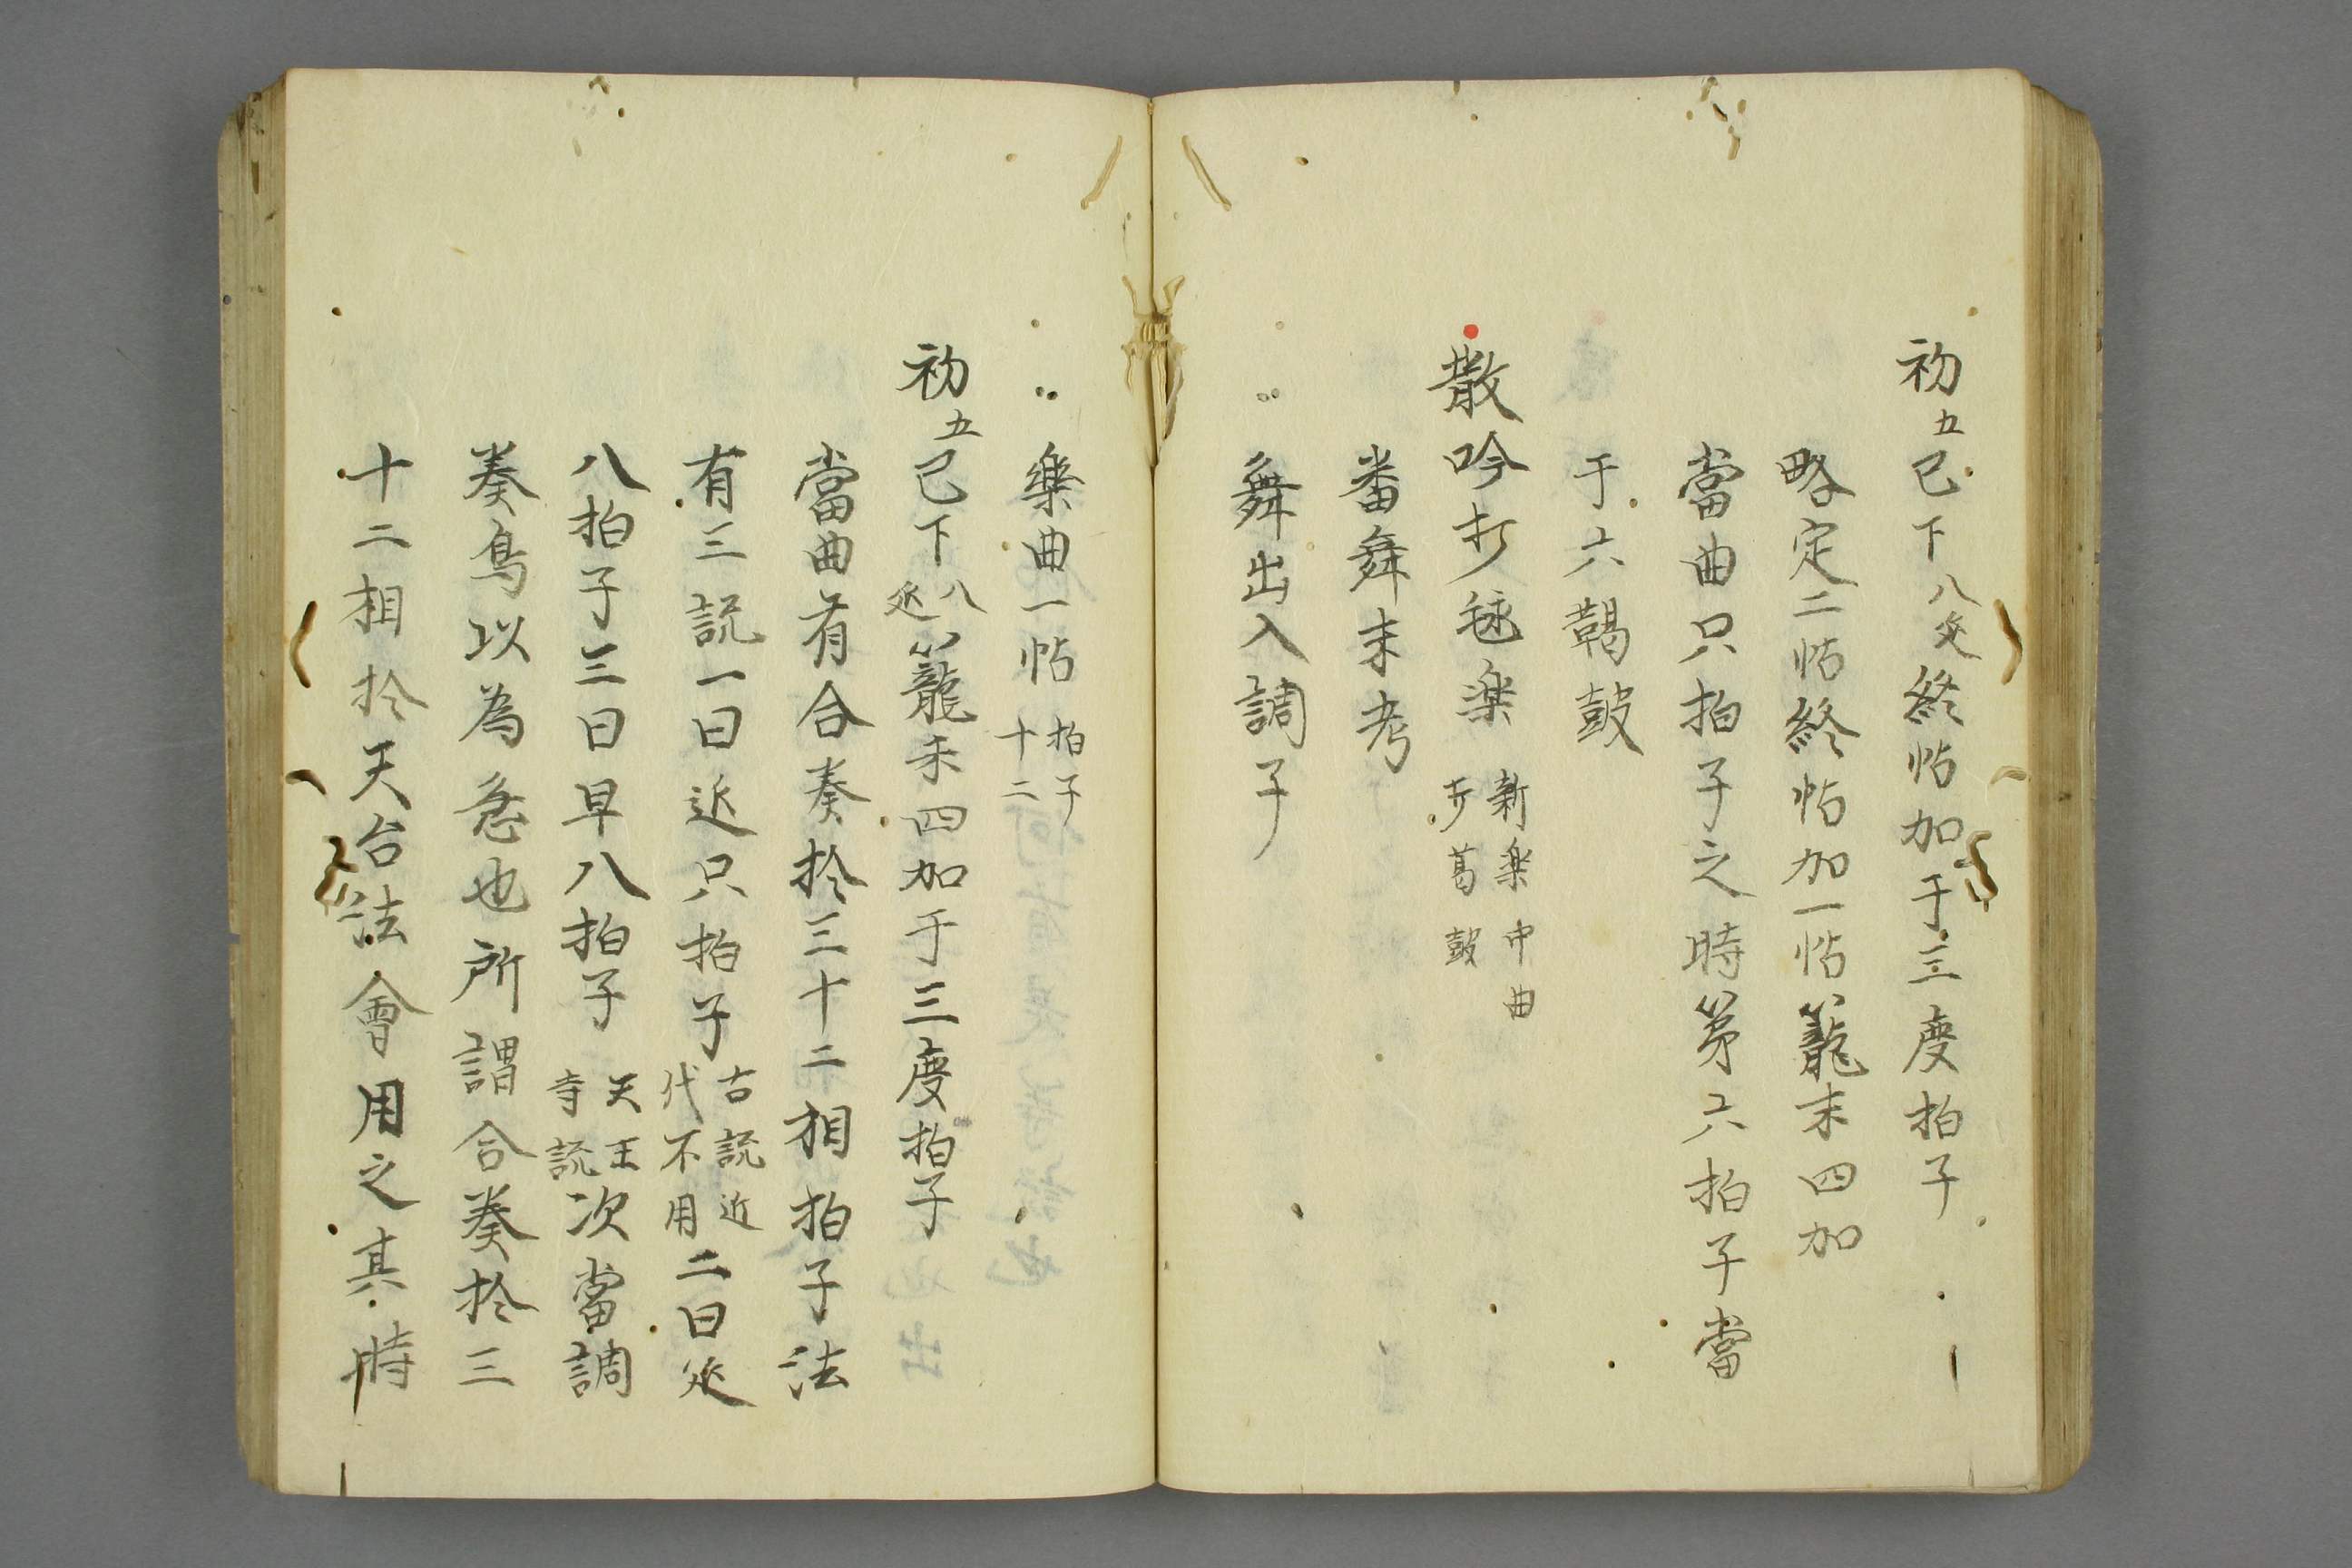 初五已下八延終帖加于三度拍子
略定二帖終帖加一帖籠末四加
當曲只拍子之時第六拍子當
于六鞨鼓
散吟打毬楽 新楽中曲 古葛鼓
番舞末考
舞出入調子
樂曲一帖 拍子十二
初五已下八延籠末四加于三度拍子
當曲有合奏於三十二相拍子法
有三説一曰延只拍子 古説近代不用 二曰延
八拍子三曰早八拍子 天王寺説 次當調
奏鳥以為急也所謂合奏於三
十二相於天台法會用之其時